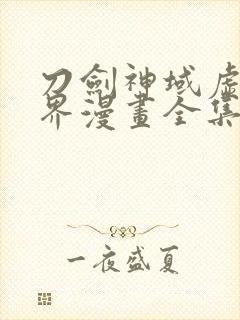 刀劍神域虛
界漫畫全集
一夜盛夏